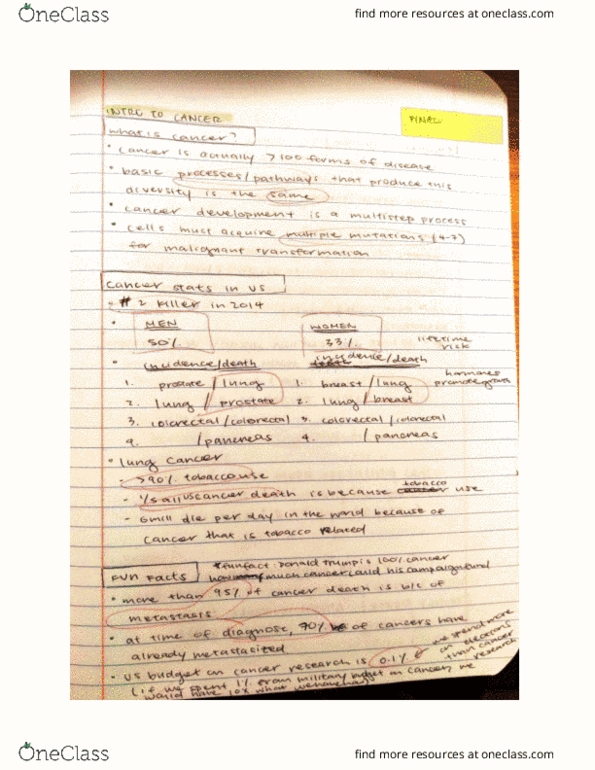 OneClass
find more resources at oneclass.com
INTRO TO CANCER
FINAL
what is cancer?
• cancer is actually >100 forms of disease
• basic processes/pathways that produce this
diversity is the same
• cancer development is a multistep process
• cells must acquire multiple mutations (4-7)
for malignant transformation
cancer stats in US
- #2 killer in 2014
• MEN WOMEN
50% 33% lifetime risk
• incidence/death incidence/death
1. prostate/lung 1. breast/lung hormones promote growth
2. lung/prostate 2. lung/breast
3. colorectal/colorectal 3. colorectal/colorectal
4. /pancreas 4. /pancreas
• lung cancer
- >90% tobacco use
- 1/5 all US cancer death is because tobacco use
- 6mill die per day in the world because of
cancer that is tobacco related
FUN FACTS
*funfact: Donald Trump is 100% cancer
much cancer could his campaign fund
• more than 95% of cancer death is b/c of
metastasis
• at time of diagnose, 70% of cancers have
already metastasized
• US budget on cancer research is 0.1%
we spend more on elections than cancer research
(if we spent 1% from military budget on cancer, we
would have 10x what we have
OneClass
find more resources at oneclass.com